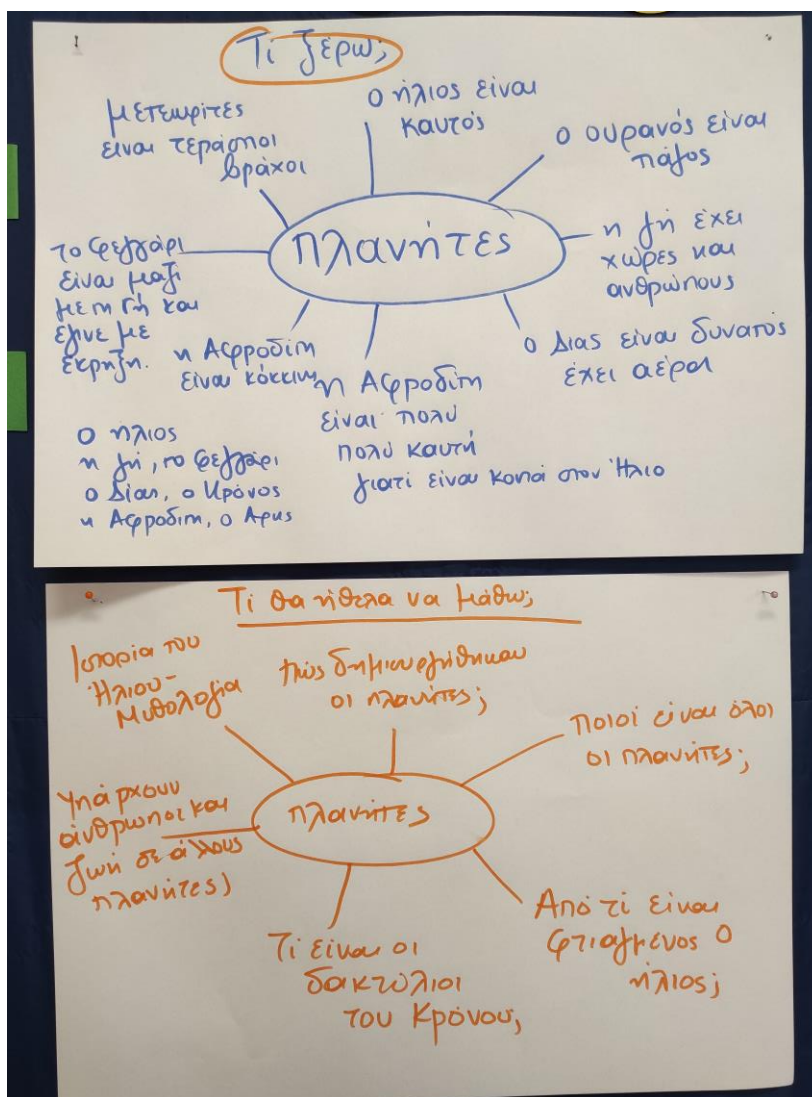 Τί ξέρω;
μετεωρίτες
είναι τεράστιοι
βράχοι
ο ήλιος είναι
καυτός
ο ουρανός είναι
πάγος
πλανήτες
η γή έχει
χώρες και
ανθρώπους
το φεγγάρι
είναι μαζι
με τη Γή και
έγινε με
έκρηξη.
η Αφροδίτη
είναι κόκκινη
η Αφροδίτη
είναι πολύ
πολύ καυτή
γιατί είναι κοντά στον Ήλιο
ο Δίας είναι δυνατός
έχει αέρα
ο ήλιος
η γή, το φεγγάρι
ο Δίας, ο Κρόνος
η Αφροδίτη, ο Άρης
Τί θα ήθελα να μάθω;
Ιστορία του
Ήλιου-
Μυθολογία
πώς δημιουργήθηκαν
οι πλανήτες;
ποιοί είναι όλοι
οι πλανήτες;
πλανήτες
Υπάρχουν
άνθρωποι και
ζωή σε άλλους
πλανήτες;
Τί είναι οι
δακτύλιοι
του Κρόνου;
Από τί είναι
φτιαγμένος ο
ήλιος;